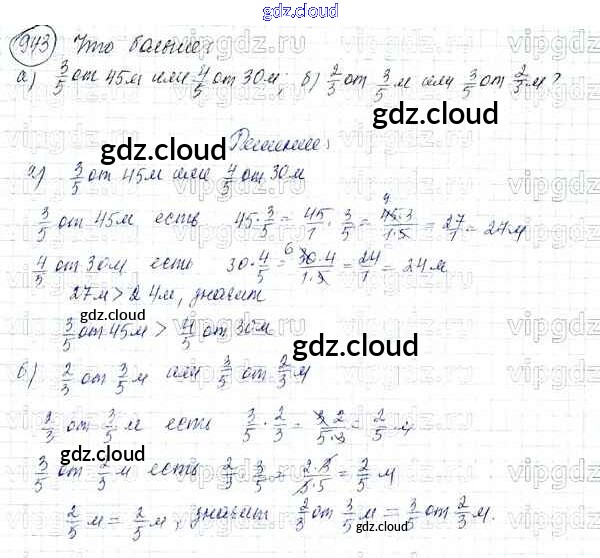 gdz.cloud
943 Что больше:
а) 3/5 от 45м или 4/5 от 30м; б) 2/3 от 3/5 м или 3/5 от 2/3 м?
Решение:
а) 3/5 от 45м или 4/5 от 30м
3/5 от 45м есть 45·3/5 = 45/1·3/5 = 45·3/1·5 = 27/1 = 27м
4/5 от 30м есть 30·4/5 = 30·4/1·5 = 24/1 = 24м
27м > 24м, значит
3/5 от 45м > 4/5 от 30м
б) 2/3 от 3/5 м или 3/5 от 2/3 м
2/3 от 3/5 м есть 3/5 · 2/3 = 3·2/5·3 = 2/5 м
3/5 от 2/3 м есть 2/3 · 3/5 = 2·3/3·5 = 2/5 м
2/5 м = 2/5 м, значит 2/3 от 3/5 м = 3/5 от 2/3 м.